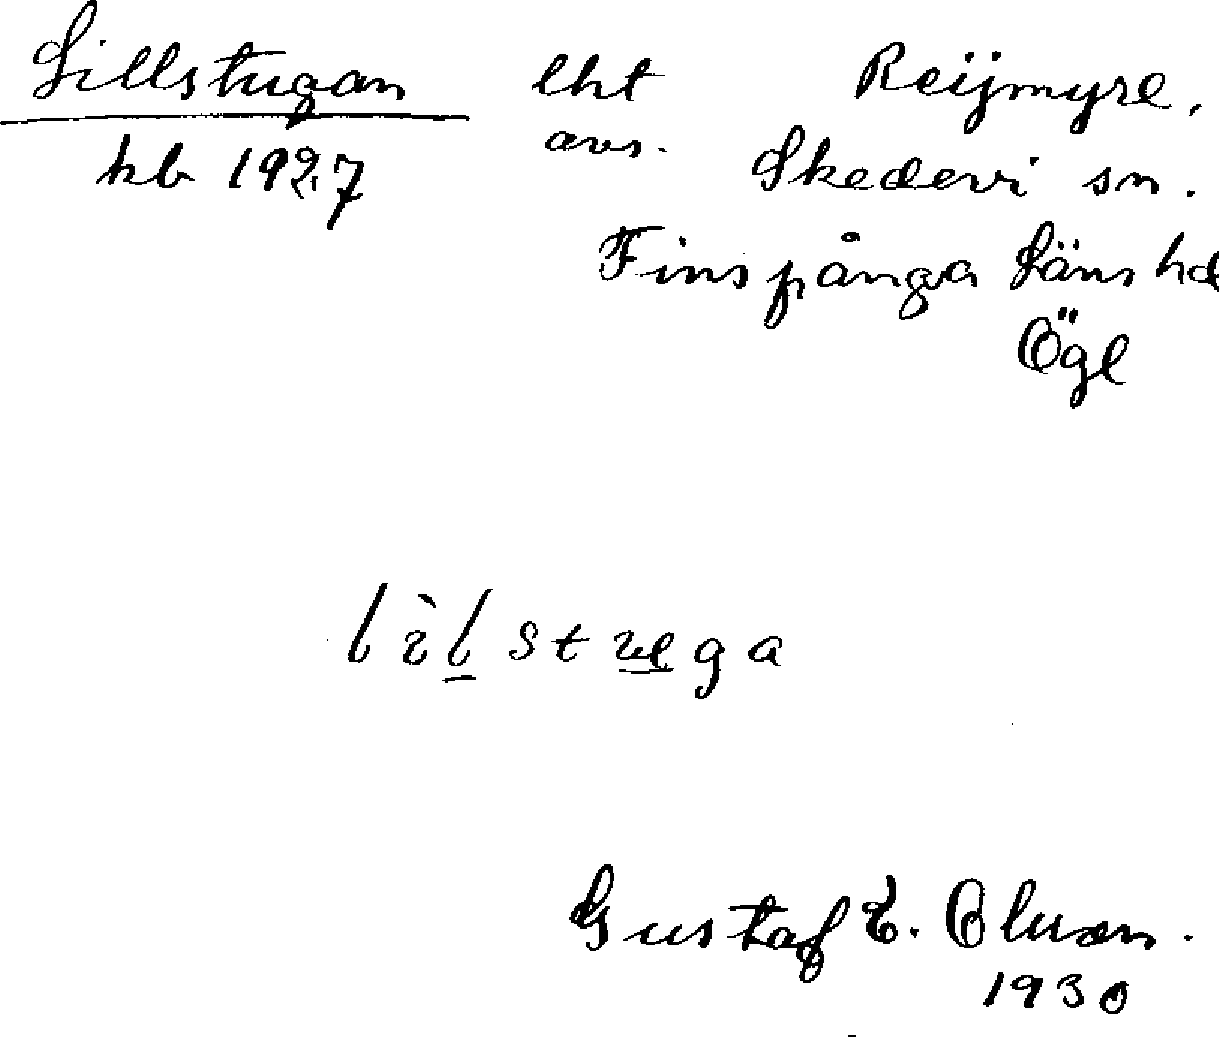 Lillstugan lht Reijmyre.
kb 1927 avs. Skedevi sn.
Finspånga Läns hd
Ögl
lìl̠stu̠ga
Gustaf E. Olsson.
1930